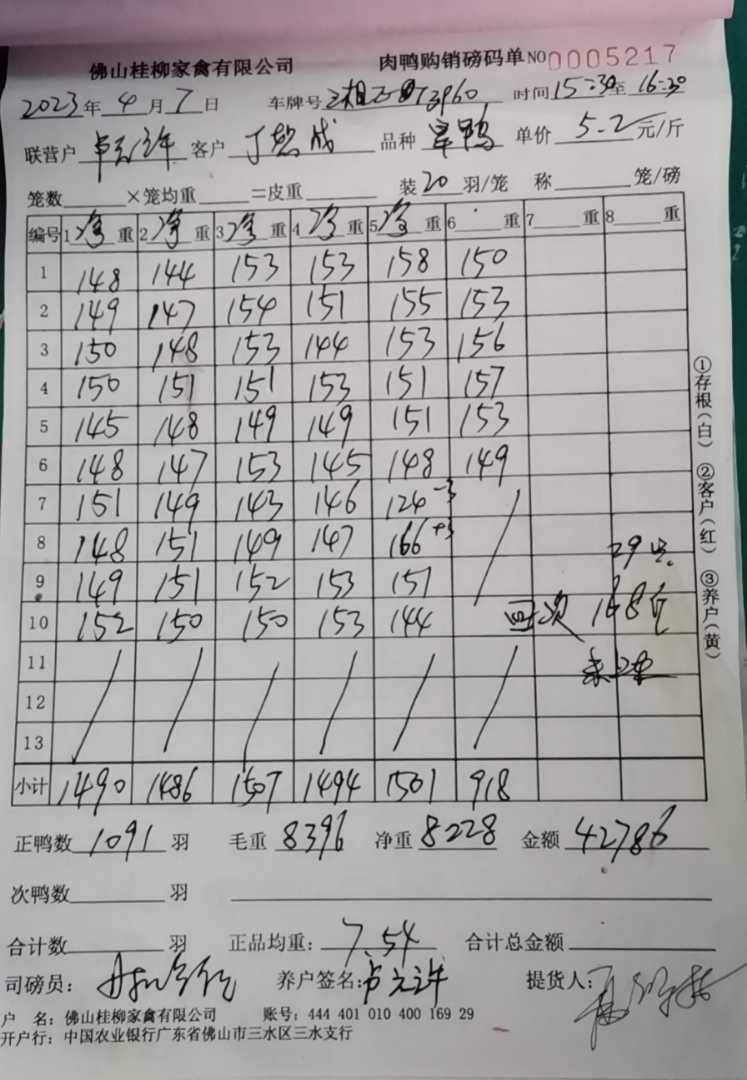 佛山桂柳家禽有限公司 肉鸭购销磅码单 NO 0005217
2023年 4 月 7 日 车牌号 3960 时间 15:30 至 16:30
联营户 卢元许 客户 丁 成 品种 旱鸭 单价 5.2 元/斤
笼数 ×笼均重 =皮重 装 20 羽/笼 称 笼/磅
编号 1 净 重 2 净 重 3 净 重 4 净 重 5 净 重 6 重 7 重 8 重
1 148 144 153 153 158 150
2 149 147 154 151 155 153
3 150 148 153 144 153 156
4 150 151 151 153 151 157
5 145 148 149 149 151 153
6 148 147 153 145 148 149
7 151 149 143 146 124 -3
8 148 151 149 147 166 +3
9 149 151 152 153 151
10 152 150 150 153 144
11
12
13
29只
次 168斤
小计 1490 1486 1507 1494 1501 918
正鸭数 1091 羽 毛重 8396 净重 8228 金额 42786
次鸭数 羽
合计数 羽 正品均重: 7.54 合计总金额
司磅员: 养户签名: 卢元许 提货人:
户 名: 佛山桂柳家禽有限公司 账号: 444 401 010 400 169 29
开户行: 中国农业银行广东省佛山市三水区三水支行
①存根(白) ②客户(红) ③养户(黄)